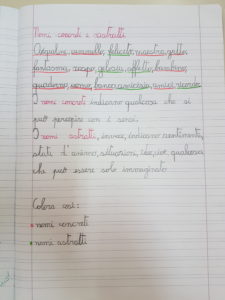 Nomi concreti e astratti
Aquilone, cammello, felicità, maestra, gatto,
fantasma, scopa, gelosia, affetto, bambino,
quaderno, uomo, banco, amicizia, amici,
I nomi concreti indicano qualcosa che si
può percepire con i sensi.
I nomi astratti, invece, indicano sentimenti,
stati d'animo, situazioni, idee, cioè qualcosa
che può essere solo immaginato.
Colora così:
nomi concreti
nomi astratti